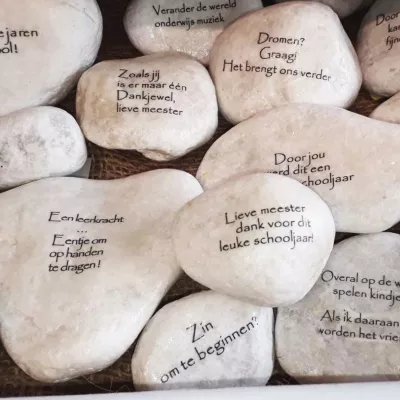 jaren
ool!
Verander de wereld
onderwijs muziek
Zoals jij
is er maar één
Dankjewel,
lieve meester
Dromen?
Graag!
Het brengt ons verder
Door
Door jou
werd dit een
schooljaar
Een leerkracht
...
Eentje om
op handen
te dragen!
Lieve meester
dank voor dit
leuke schooljaar!
"Zin
om te beginnen"
Overal op de
spelen kindje
Als ik daaraan
worden het